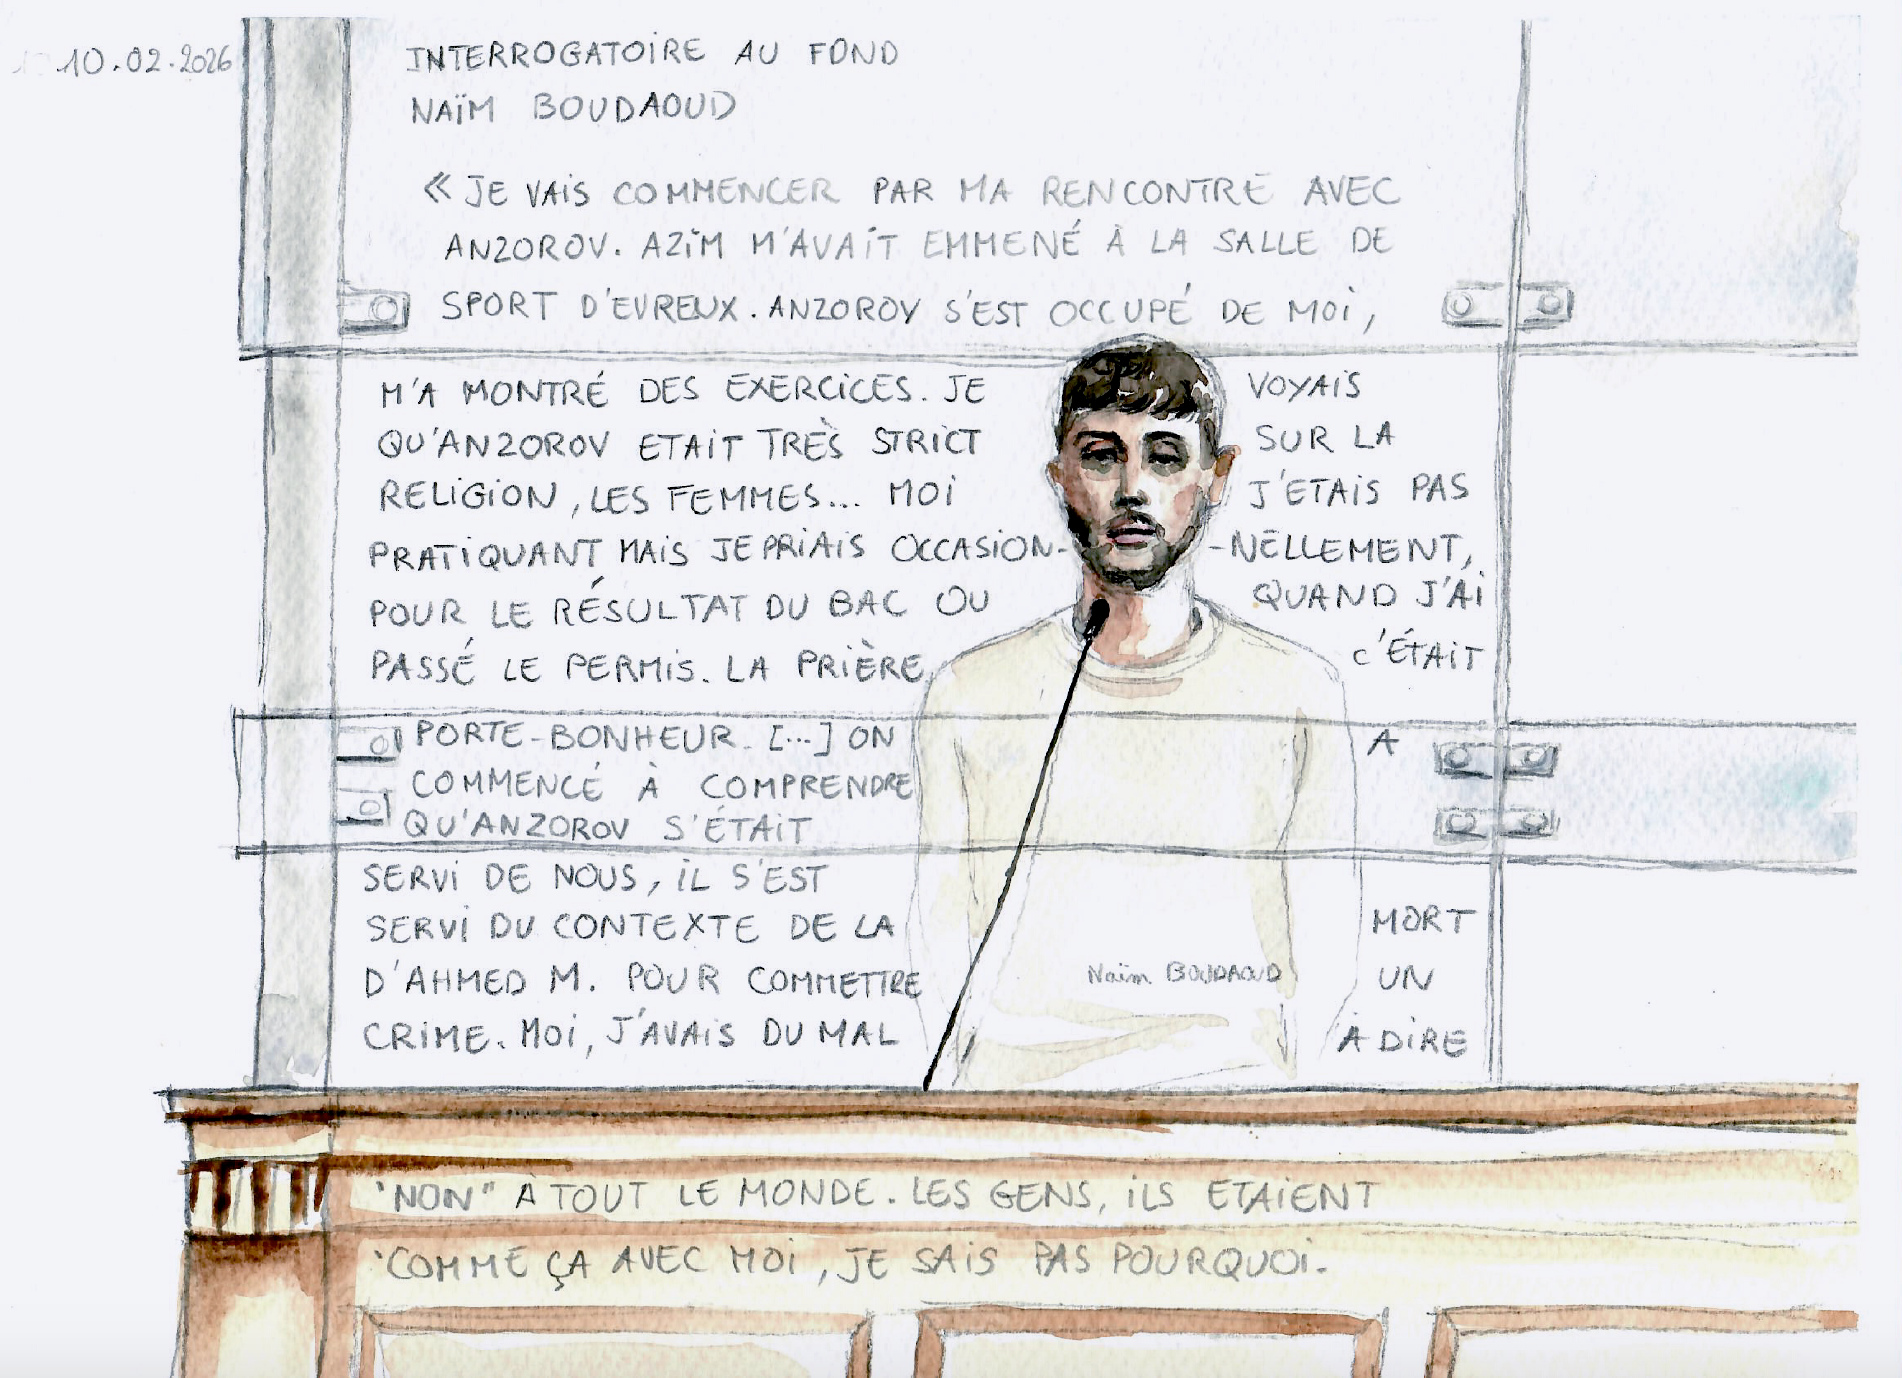 10.02.2026
INTERROGATOIRE AU FOND
NAÏM BOUDAOUD
« JE VAIS COMMENCER PAR MA RENCONTRE AVEC
ANZOROV. AZIM M'AVAIT EMMENÉ À LA SALLE DE
SPORT D'EVREUX. ANZOROV S'EST OCCUPÉ DE MOI,
M'A MONTRÉ DES EXERCICES. JE VOYAIS
QU'ANZOROV ETAIT TRÈS STRICT SUR LA
RELIGION, LES FEMMES... MOI J'ETAIS PAS
PRATIQUANT MAIS JE PRIAIS OCCASION- -NELLEMENT,
POUR LE RÉSULTAT DU BAC OU QUAND J'AI
PASSÉ LE PERMIS. LA PRIÈRE C'ÉTAIT
PORTE-BONHEUR. [...] ON A
COMMENCÉ À COMPRENDRE
QU'ANZOROV S'ÉTAIT
SERVI DE NOUS, IL S'EST
SERVI DU CONTEXTE DE LA MORT
D'AHMED M. POUR COMMETTRE UN
CRIME. MOI, J'AVAIS DU MAL À DIRE
Naïm BOUDAOUD
"NON" À TOUT LE MONDE. LES GENS, ILS ETAIENT
'COMME ÇA AVEC MOI, JE SAIS PAS POURQUOI.